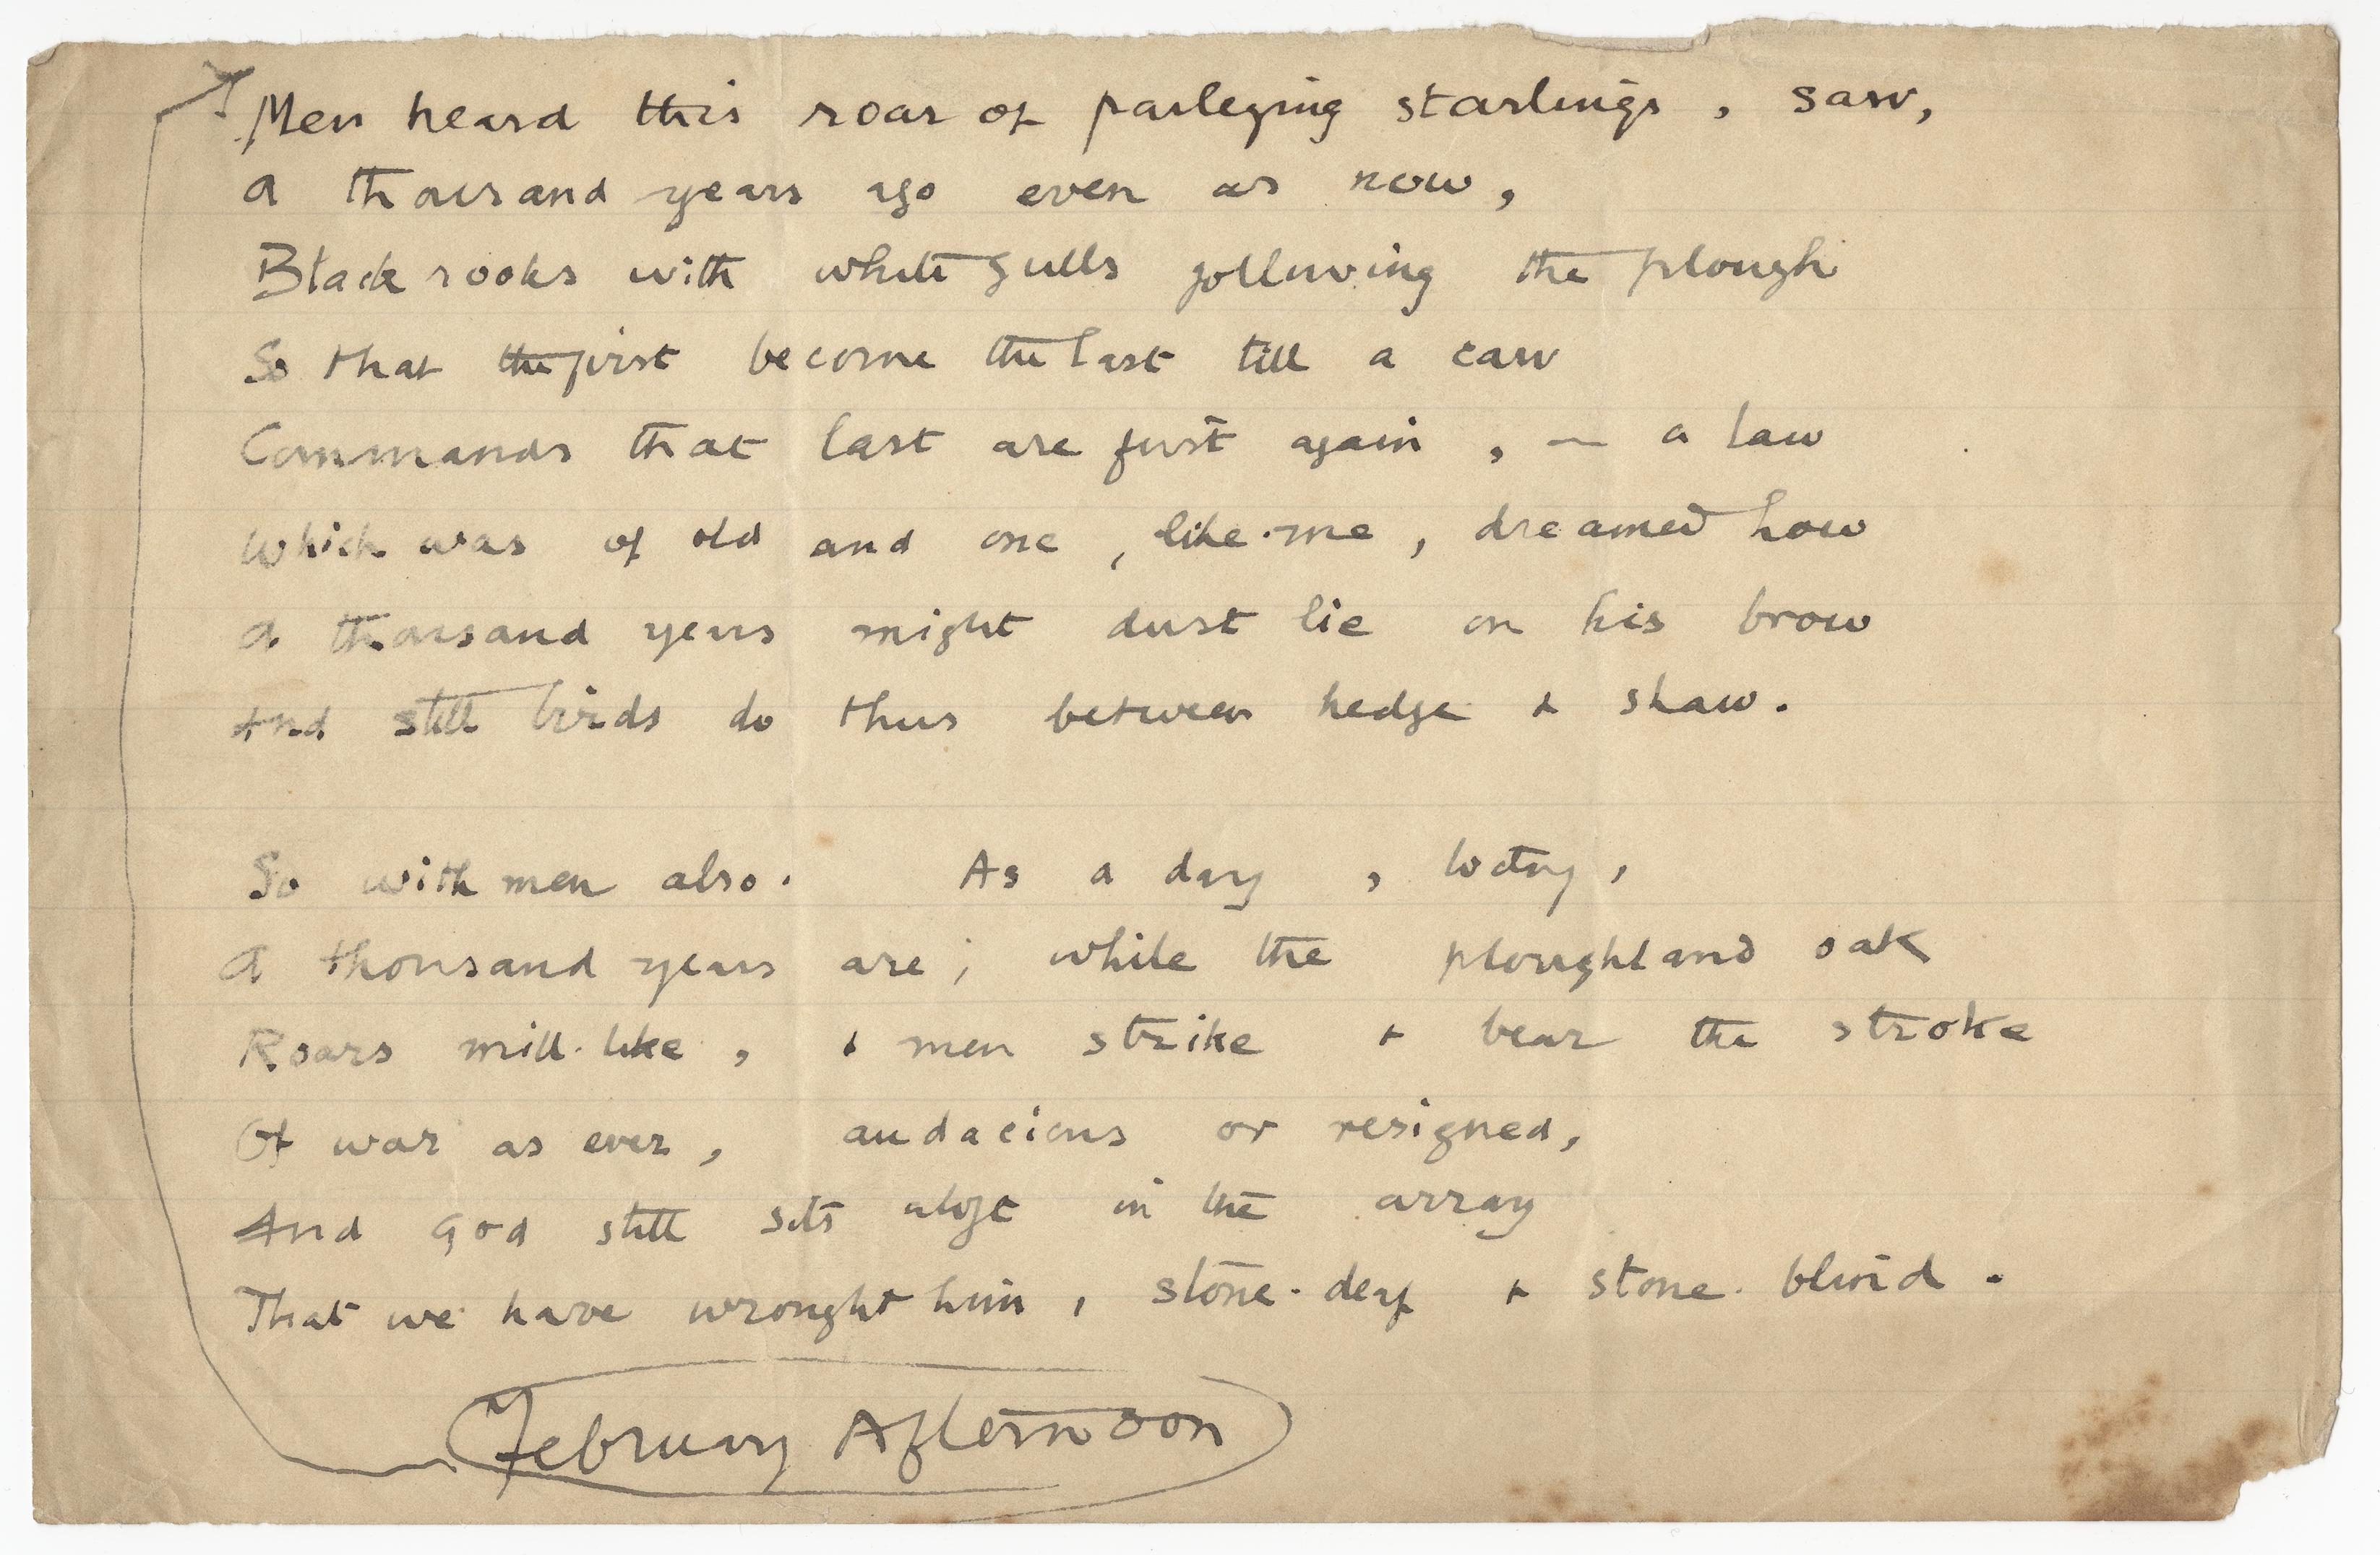 Men heard this roar of parleying starlings, saw,
A thousand years ago even as now,
Black rooks with white gulls following the plough
So that the first become the last till a caw
Commands that last are first again, — a law
Which was of old and one, like me, dreamed how
A thousand years might dust lie on his brow
And still birds do thus between hedge & shaw.
So with men also. As a day, today,
A thousand years are; while the ploughland oak
Roars mill-like, & men strike & bear the stroke
Of war as ever, audacious or resigned,
And God still sits aloft in the array
That we have wrought him, stone-deaf & stone-blind.
February Afternoon